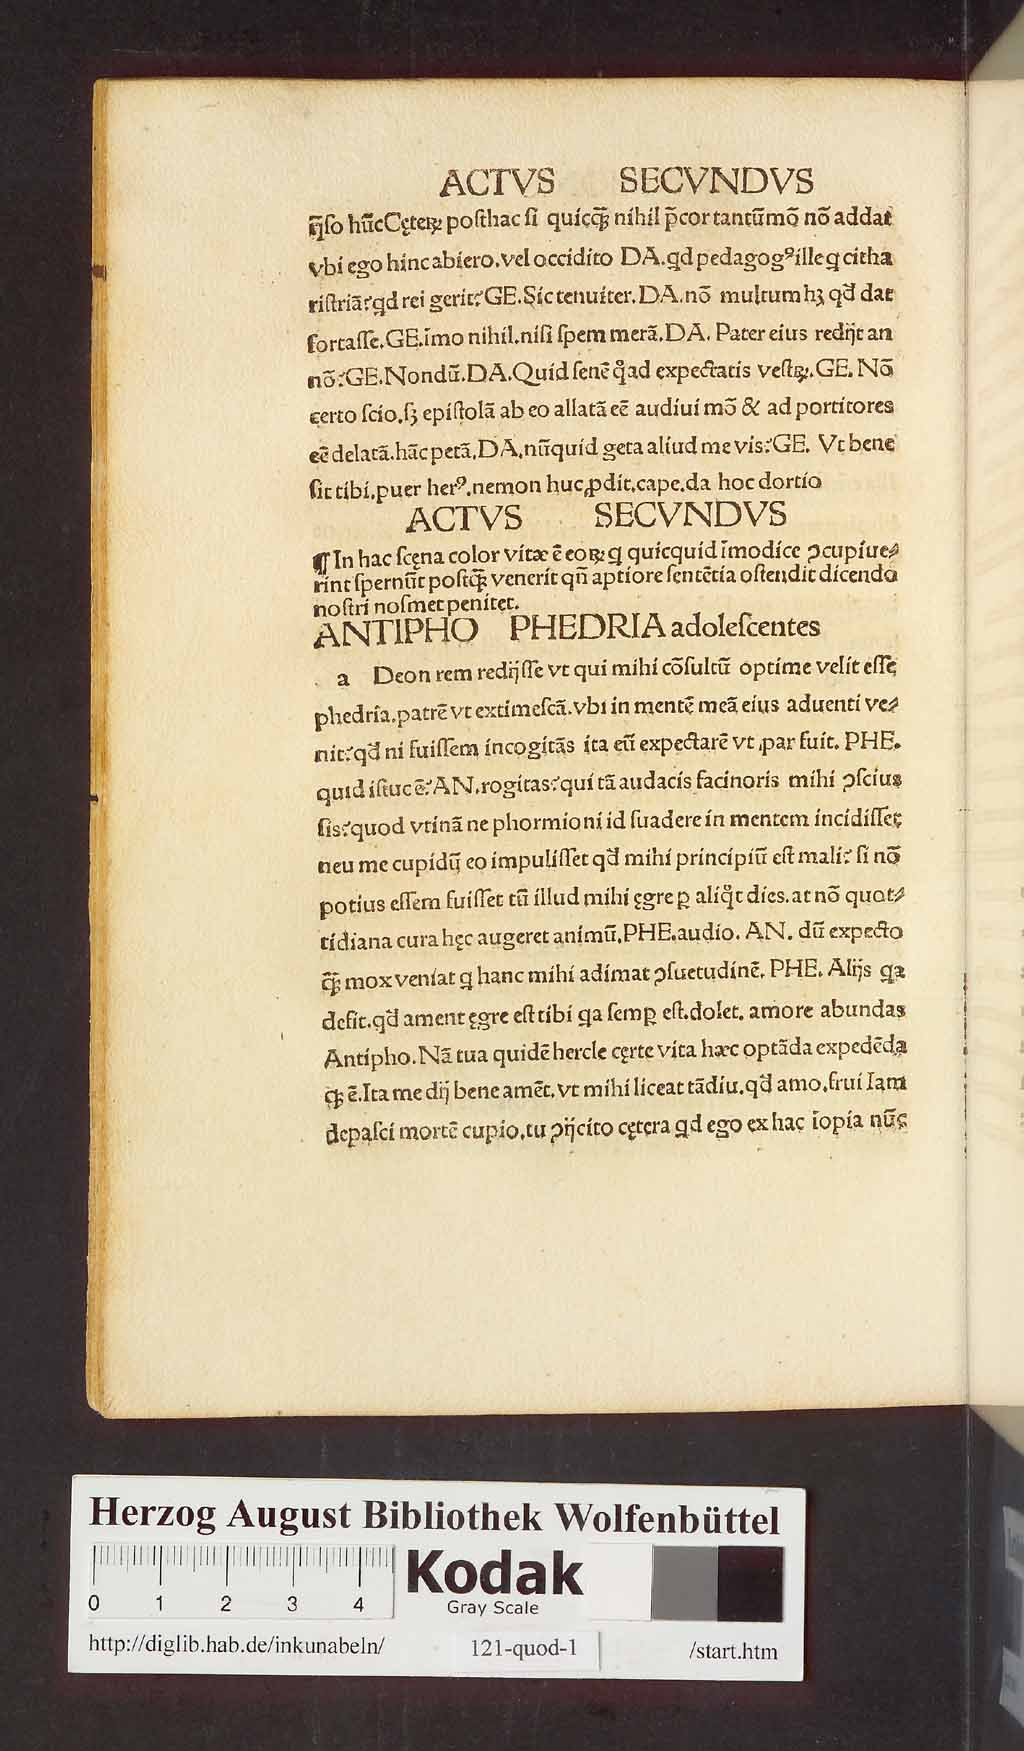 ACTVS SECVNDVS
q̃ſo hũc Cęteꝝ poſthac ſi quicq̃ꝫ nihil p̃cor tantũmõ nõ addat
vbi ego hinc abiero. vel occidito DA. qd pedagogꝰ ille q citha
riſtriã? qd rei gerit? GE. Sic tenuiter. DA. nõ multum hꝫ qđ dat
fortaſſe. GE. ĩmo nihil. niſi ſpem merã. DA. Pater eius redijt an
nõ? GE. Nondũ. DA. Quid ſenẽ q̊ad expectatis veſtꝝ. GE. Nõ
certo ſcio. ſꝫ epiſtolã ab eo allatã eẽ audiui mõ & ad portitores
eẽ delatã. hãc petã. DA. nũquid geta aliud me vis? GE. Vt bene
ſit tibi. puer herꝰ. nemon huc ꝓdit. cape. da hoc dortio
ACTVS SECVNDVS
¶ In hac ſcęna color vitæ ẽ eoꝝ q quicquid ĩmodice ꝯcupiue⸗
rint ſpernũt poſtq̃ꝫ venerit qñ aptiore ſentẽtia oſtendit dicendo
noſtri noſmet penitet.
ANTIPHO PHEDRIA adoleſcentes
a Deon rem redijſſe vt qui mihi cõſultũ optime velit eſſe
phedria. patrẽ vt extimeſcã. vbi in mentẽ meã eius aduenti ve⸗
nit? qđ ni fuiſſem incogitãs ita eũ expectarẽ vt par fuit. PHE.
quid iſtuc ẽ? AN. rogitas? qui tã audacis facinoris mihi ꝯſcius
ſis? quod vtinã ne phormioni id ſuadere in mentem incidiſſet
neu me cupidũ eo impuliſſet qđ mihi principiũ eſt mali? ſi nõ
potius eſſem fuiſſet tũ illud mihi ęgre ꝑ aliq̊t dies. at nõ quot⸗
tidiana cura hęc augeret animũ. PHE. audio. AN. dũ expecto
q̃ꝫ mox veniat q hanc mihi adimat ꝯſuetudinẽ. PHE. Alijs qa
defit. qđ ament ęgre eſt tibi qa ſemꝑ eſt. dolet. amore abundas
Antipho. Nã tua quidẽ hercle cęrte vita hæc optãda expedẽda
q̃ꝫ ẽ. Ita me dij bene amẽt. vt mihi liceat tãdiu. qđ amo. frui Iam
depaſci mortẽ cupio. tu ꝯijcito cętera qd ego ex hac ĩopia nũc
Herzog August Bibliothek Wolfenbüttel
0 1 2 3 4
Kodak
Gray Scale
http://diglib.hab.de/inkunabeln/ 121-quod-1 /start.htm